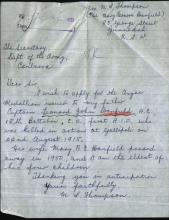 Mrs. N. S. Thompson
(nee Marjorie Bonfield)
St George Street
Gunnedah
N.S.W.
The Secretary
Dept of the Army,
Canberra
Dear Sir,
I wish to apply for the Anzac
Medallion issued to my father
Captain Leonard John H.C.
18th Battalion, C.O. first A.I.F. who
was killed in action at Gallipoli on
22nd August 1915.
His wife Mary passed
away in 1950, and I am the eldest of
his four children
Thanking you in anticipation
Yours faithfully
N. S. Thompson